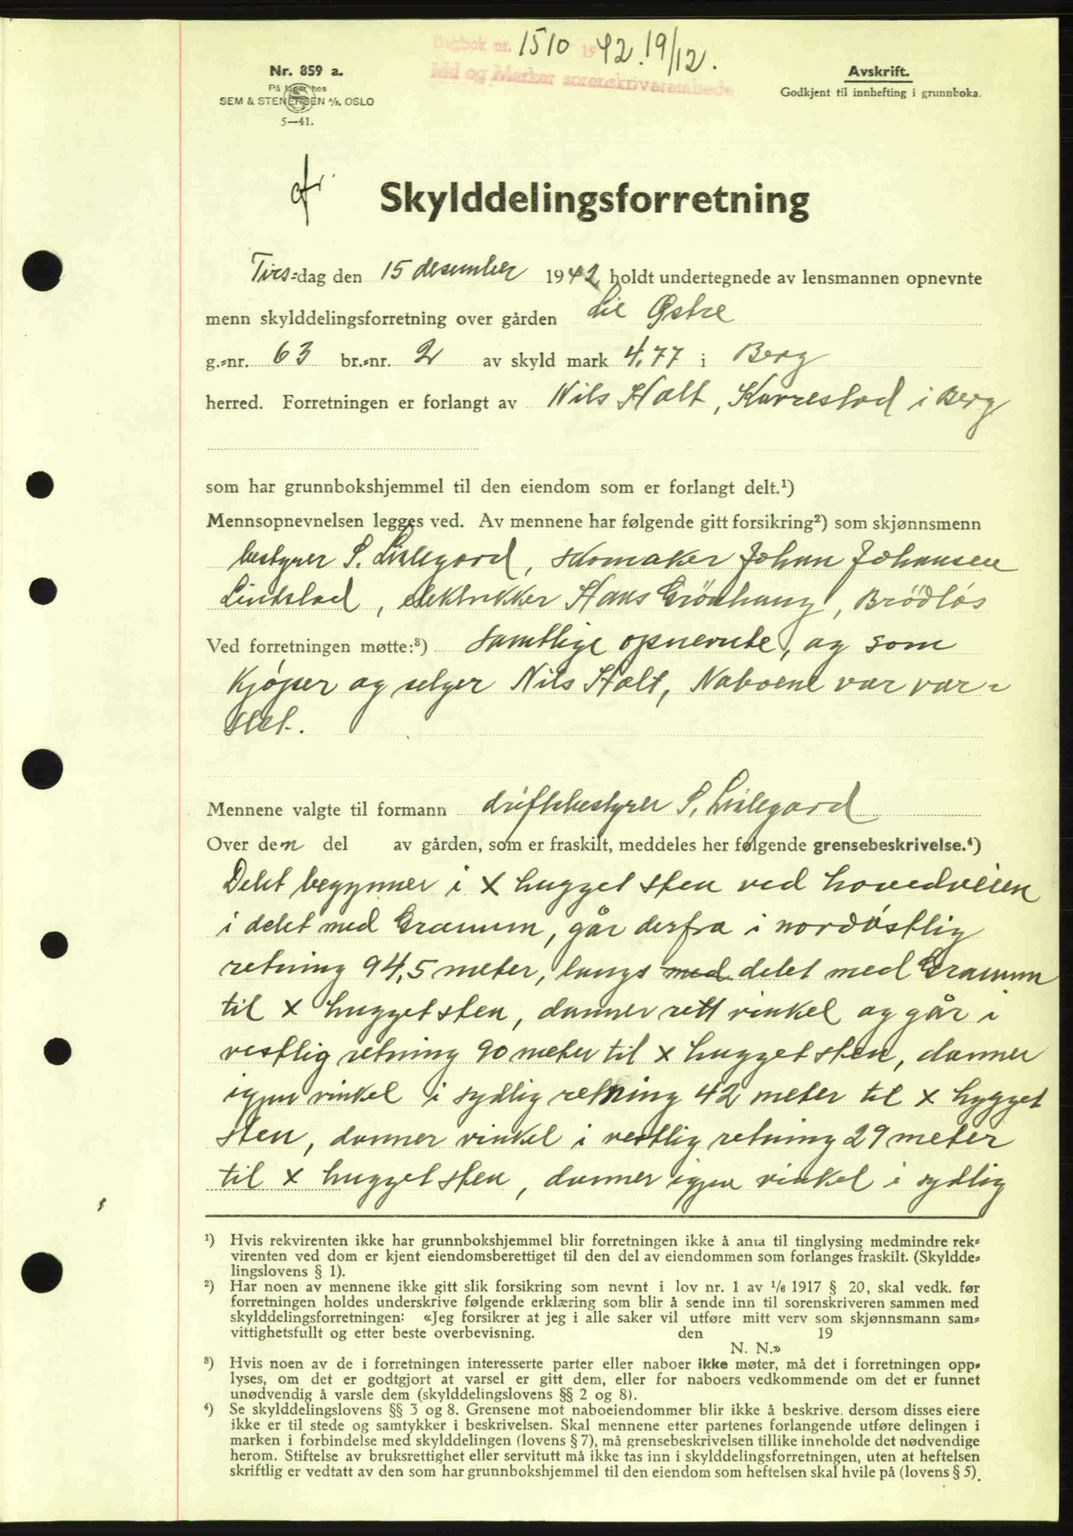 Dagbok nr. 1510 1942. 19/12.
Idd og Marker sorenskriverembede
Nr. 859 a.
På lager hos
SEM & STENERSEN A/S, OSLO
5—41.
Avskrift.
Godkjent til innhefting i grunnboka.
Skylddelingsforretning
Tirs-dag den 15 desember 1942 holdt undertegnede av lensmannen opnevnte
menn skylddelingsforretning over gården Lie Østre
g.-nr. 63 br.-nr. 2 av skyld mark 4,77 i Berg
herred. Forretningen er forlangt av Nils Holt, Karrestad i Berg
som har grunnbokshjemmel til den eiendom som er forlangt delt.¹)
Mennsopnevnelsen legges ved. Av mennene har følgende gitt forsikring²) som skjønnsmenn
bestyrer S. Lislegard, skomaker Johan Johansen
Lindstad, elektrikker Hans Grönhaug, Brödløs
Ved forretningen møtte:³) Samtlige opnevnte, og som
Kjøper og selger Nils Holt, Naboene var var-
slet.
Mennene valgte til formann driftsbestyrer S. Lislegard
Over den del av gården, som er fraskilt, meddeles her følgende grensebeskrivelse.⁴)
Delet begynner i x hugget sten ved hovedveien
i delet med Gramum, går derfra i nordöstlig
retning 94,5 meter, langs med delet med Gramum
til x hugget sten, danner rett vinkel og går i
vestlig retning 90 meter til x hugget sten, danner
igjen vinkel i sydlig retning 42 meter til x hygget
sten, danner vinkel i vestlig retning 29 meter
til x hugget sten, danner igjen vinkel i sydlig
¹) Hvis rekvirenten ikke har grunnbokshjemmel blir forretningen ikke å anta til tinglysing medmindre rek-
virenten ved dom er kjent eiendomsberettiget til den del av eiendommen som forlanges fraskilt. (Skyldde-
lingslovens § 1).
²) Har noen av mennene ikke gitt slik forsikring som nevnt i lov nr. 1 av 1/6 1917 § 20, skal vedk. før
forretningen holdes underskrive følgende erklæring som blir å sende inn til sorenskriveren sammen med
skylddelingsforretningen: «Jeg forsikrer at jeg i alle saker vil utføre mitt verv som skjønnsmann sam-
vittighetsfullt og etter beste overbevisning. den 19
N. N.»
³) Hvis noen av de i forretningen interesserte parter eller naboer ikke møter, må det i forretningen opp-
lyses, om det er godtgjort at varsel er gitt dem, eller for naboers vedkommende om det er funnet
unødvendig å varsle dem (skylddelingslovens §§ 2 og 8).
⁴) Se skylddelingslovens §§ 3 og 8. Grensene mot naboeiendommer blir ikke å beskrive, dersom disses eiere
ikke er til stede og samtykker i beskrivelsen. Skal mennene etter partenes forlangende utføre delingen i
marken i forbindelse med skylddelingen (lovens § 7), må grensebeskrivelsen tillike inneholde det nødvendige
herom. Stiftelse av bruksrettighet eller servitutt må ikke tas inn i skylddelingsforretningen, uten at heftelsen
skriftlig er vedtatt av den som har grunnbokshjemmel til den eiendom som heftelsen skal hvile på (lovens § 5).